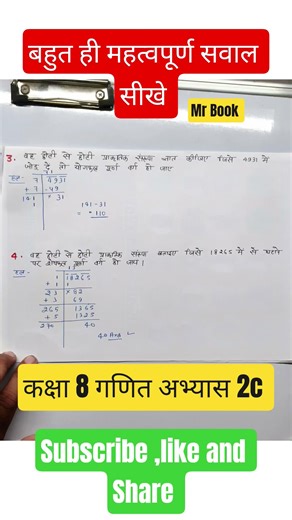 बहुत ही महत्वपूर्ण सवाल
सीखे
Mr Book
3. वह छोटी से छोटी प्राकृतिक संख्या ज्ञात कीजिए जिसे 4931 में
जोड़ दें तो योगफल पूर्ण वर्ग हो जाए
हल:-
7 4931
+ 7 -49
141 31
1
141-31
= 110
4. वह छोटी से छोटी प्राकृतिक संख्या बताइए जिसे 18265 में से घटाने
पर शेषफल पूर्ण वर्ग हो जाए।
हल:-
1 18265
+ 1 1
23 82
+ 3 69
265 1365
+ 5 1325
270 40
40 Ans
कक्षा 8 गणित अभ्यास 2C
Subscribe ,like and
Share